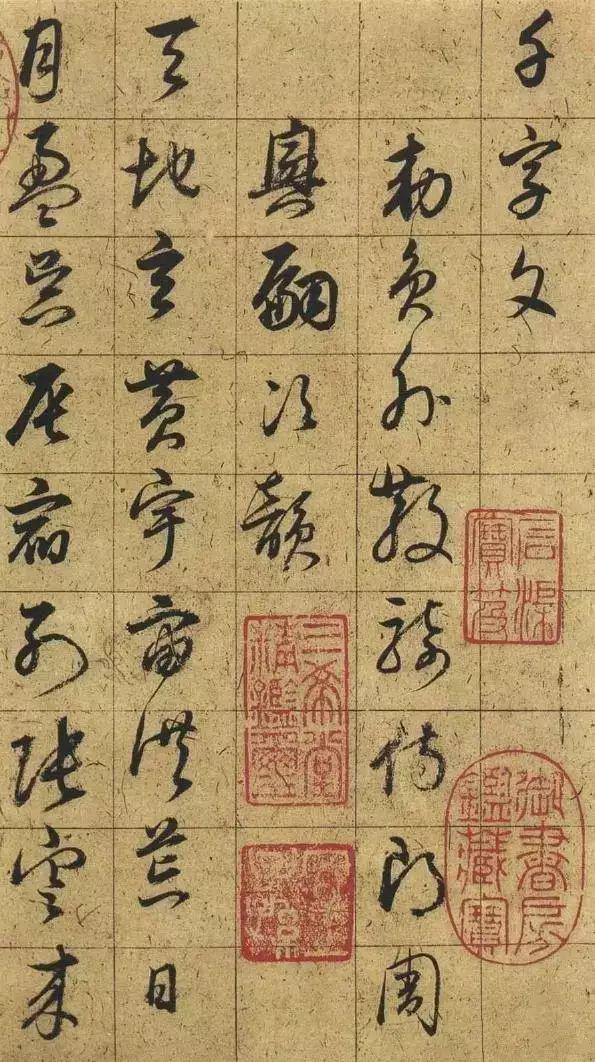 千字文
勑員外散騎侍郎周
興嗣次韻
天地玄黃宇宙洪荒日
月盈昃辰宿列張寒來
石渠寶笈
御書房鑑藏寶
三希堂精鑑璽